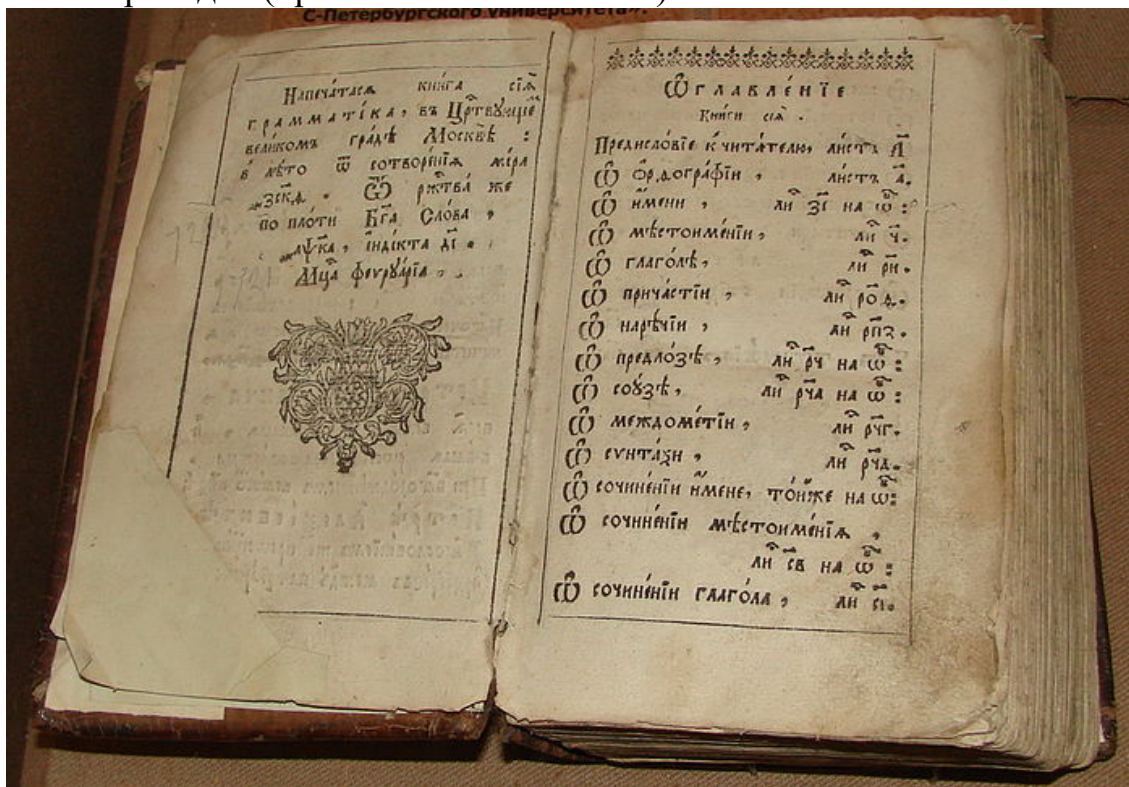 С-Петербургского университета».
Напеча́тасѧ кни́га сїѧ̀
грамма́тїка, въ Црⷭ҇твꙋющеⷨ
вели́комъ гра́дѣ Москвѣ̀ :
в лѣ́то ѿ сотворе́нїѧ мі́ра
҂зскѳ҃. Ѿ ржⷭ҇тва̀ же
по пло́ти Бг҃а Сло́ва ,
҂аѱк҃а , і҆ндї́кта дї҃ .
Мцⷭ҇а феврꙋа́рїа .
Ѡ҆главле́нїе
Кни́ги сїѧ̀ .
Предисло́вїе к чита́телю, ли́стъ А҃
Ѽ ѻ҆рѳогра́фїи , ли́стъ а҃.
Ѽ и҆́мени , лиⷭ҇ зі҃ на ѡ҆бⷪ҇ :
Ѽ мѣстоиме́нїи , лиⷭ҇ ч҃.
Ѽ глаго́лѣ , лиⷭ҇ ри҃.
Ѽ прича́стїи , лиⷭ҇ роѳ҃.
Ѽ нарѣ́чїи , лиⷭ҇ рпз҃.
Ѽ предло́зѣ , лиⷭ҇ рч҃ на ѡ҆бⷪ҇ :
Ѽ соꙋ́зѣ , лиⷭ҇ рча҃ на ѡ҆бⷪ҇ :
Ѽ междоме́тїи , лиⷭ҇ рчг҃.
Ѽ сѵнта́ѯи , лиⷭ҇ рчд҃.
Ѽ сочине́нїи и҆́мене, то́йже на ѡ҆бⷪ҇ :
Ѽ сочине́нїи мѣстоиме́нїѧ ,
лиⷭ҇ св҃ на ѡ҆бⷪ҇ :
Ѽ сочине́нїи глаго́ла , лиⷭ҇ сі҃.